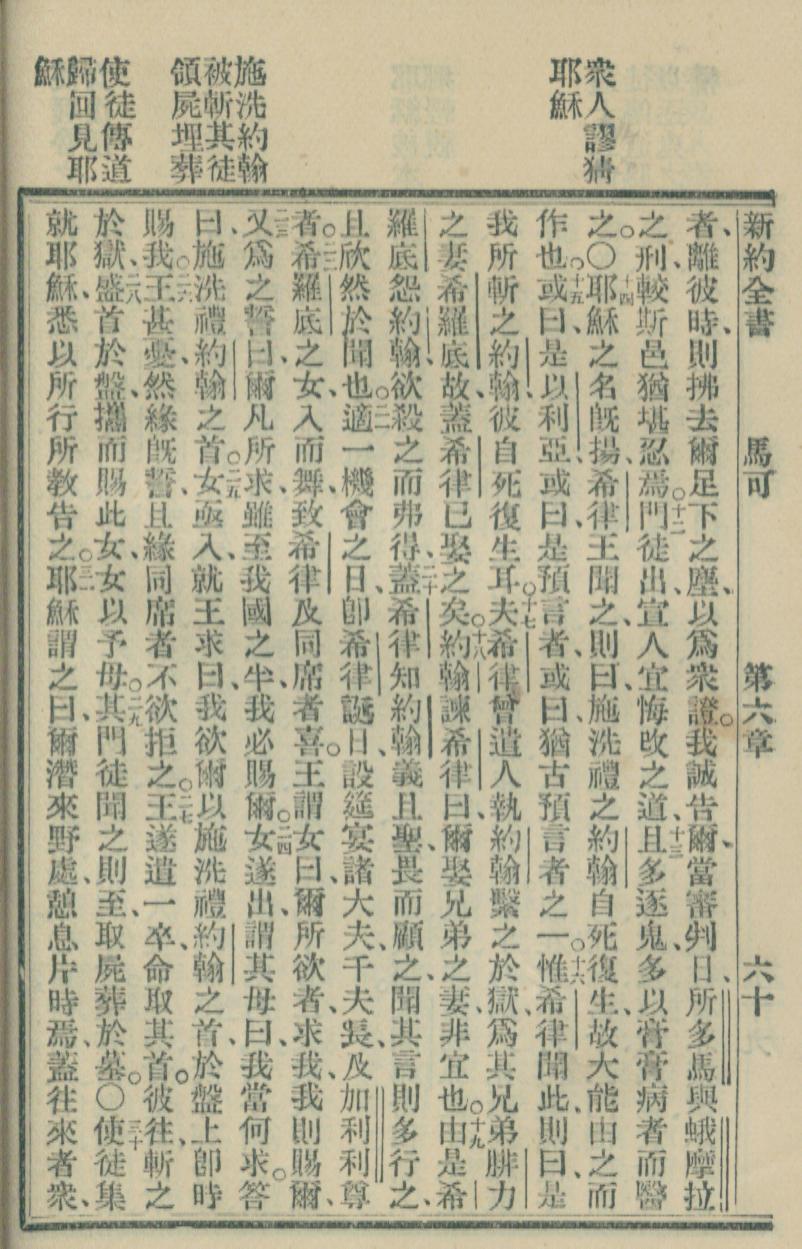 衆人謬猜
耶穌
施洗約翰
被斬其徒
領屍埋葬
使徒傳道
歸回見耶
穌
新約全書 馬可 第六章 六十
者、離彼時、則拂去爾足下之塵、以爲衆證。我誠告爾、當審判日、所多馬與蛾摩拉
之刑、較斯邑猶堪忍焉。十二門徒出、宣人宜悔改之道、十三且多逐鬼、多以膏膏病者而醫
之。〇十四耶穌之名旣揚、希律王聞之、則曰、施洗禮之約翰自死復生、故大能由之而
作也。十五或曰、是以利亞、或曰、是預言者、或曰、猶古預言者之一。十六惟希律聞此、則曰、是
我所斬之約翰、彼自死復生耳。十七夫希律曾遣人執約翰、繫之於獄、爲其兄弟腓力
之妻希羅底故、蓋希律已娶之矣。十八約翰諫希律曰、爾娶兄弟之妻、非宜也。十九由是希
羅底怨約翰、欲殺之而弗得、二十蓋希律知約翰義且聖、畏而顧之、聞其言則多行之、
且欣然於聞也。二一適一機會之日、卽希律誕日、設筵宴諸大夫、千夫長、及加利利尊
者。二二希羅底之女、入而舞、致希律及同席者喜。王謂女曰、爾所欲者、求我、我則賜爾、
二三又爲之誓曰、爾凡所求、雖至我國之半、我必賜爾。二四女遂出、謂其母曰、我當何求。答
曰、施洗禮約翰之首。二五女亟入、就王求曰、我欲爾以施洗禮約翰之首、於盤上卽時
賜我。二六王甚憂、然緣旣誓、且緣同席者、不欲拒之。二七王遂遣一卒、命取其首。彼往、斬之
於獄、二八盛首於盤、攜而賜此女、女以予母。二九其門徒聞之則至、取屍葬於墓。〇三十使徒集
就耶穌、悉以所行所教告之。三一耶穌謂之曰、爾潛來野處、憩息片時焉、蓋往來者衆、